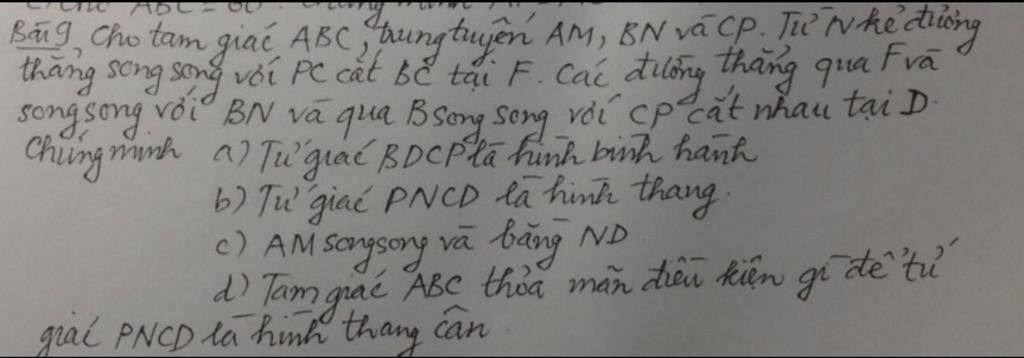 Bài 9, Cho tam giác ABC, trung tuyến AM, BN và CP. Từ N kẻ đường
thẳng song song với PC cắt BC tại F. Các đường thẳng qua F và
song song với BN và qua B song song với CP cắt nhau tại D.
Chứng minh a) Tứ giác BDCP là hình bình hành
b) Tứ giác PNCD là hình thang.
c) AM song song và bằng ND
d) Tam giác ABC thỏa mãn điều kiện gì để tứ
giác PNCD là hình thang cân.